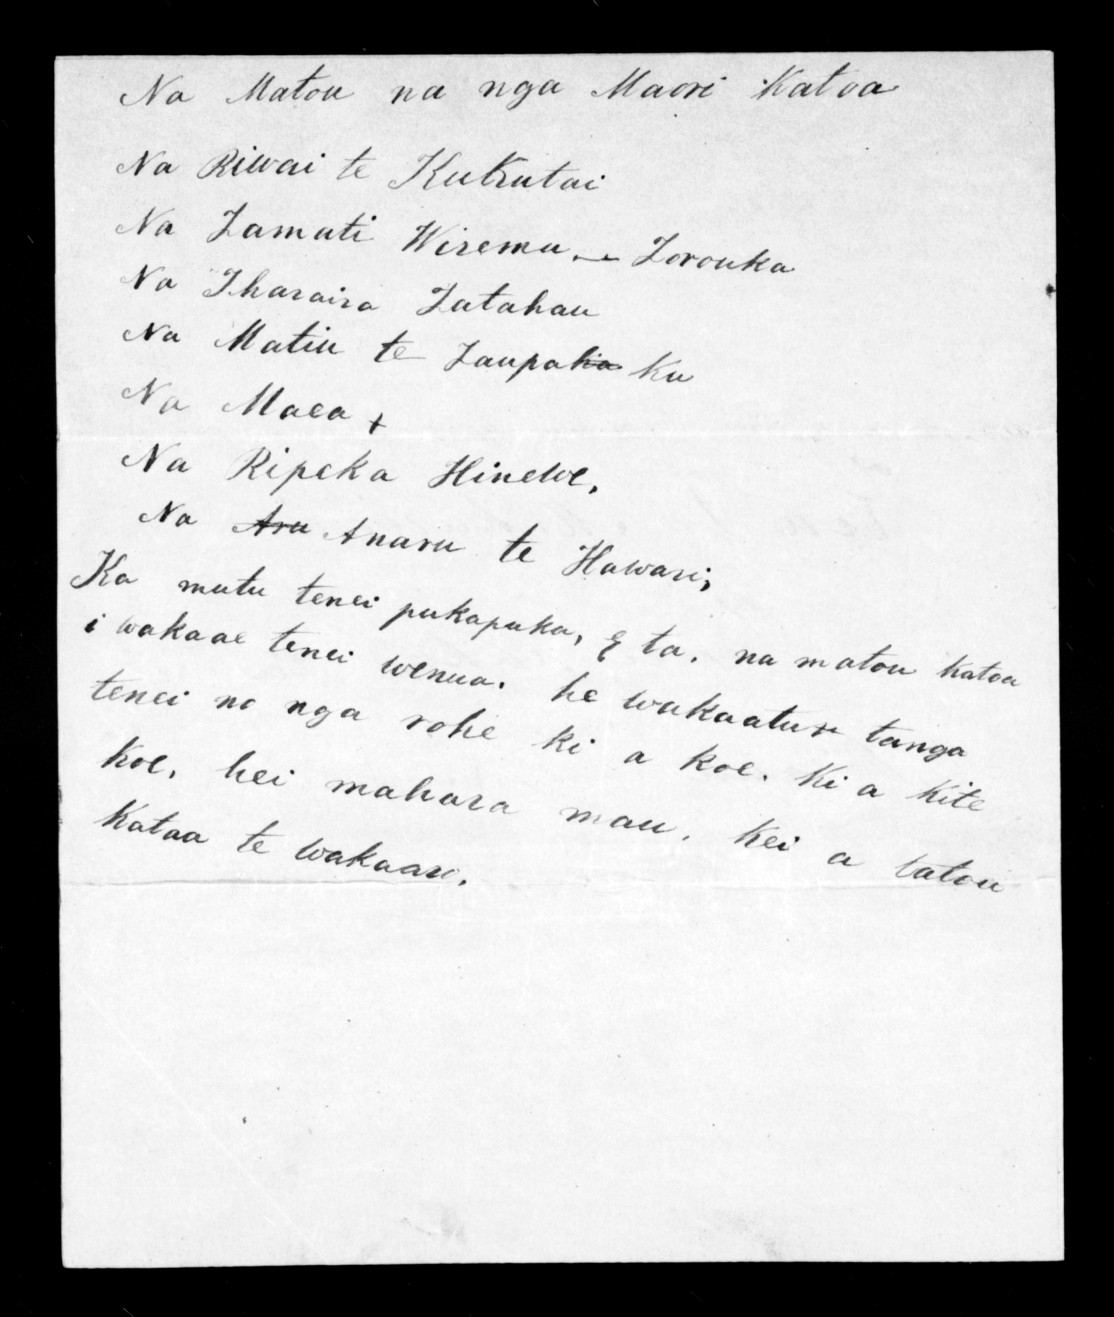 Na Matou na nga Maori Katoa
Na Riwai te Kutkutai
Na Tamati Wiremu. — Torouka
Na Iharaira Tatahau
Na Matiu te Taupakia Ku
Na Maea +
Na Ripeka Hinewe,
Na Aru Anaru te Hawari;
Ka mutu tenei pukapuka, E ta. na matou katoa
i wakaae tenei wenua. he wakaature tanga
tenei no nga rohe ki a koe. Ki a kite
koe, hei mahara mau. kei a tatou
kataa te wakaaro.